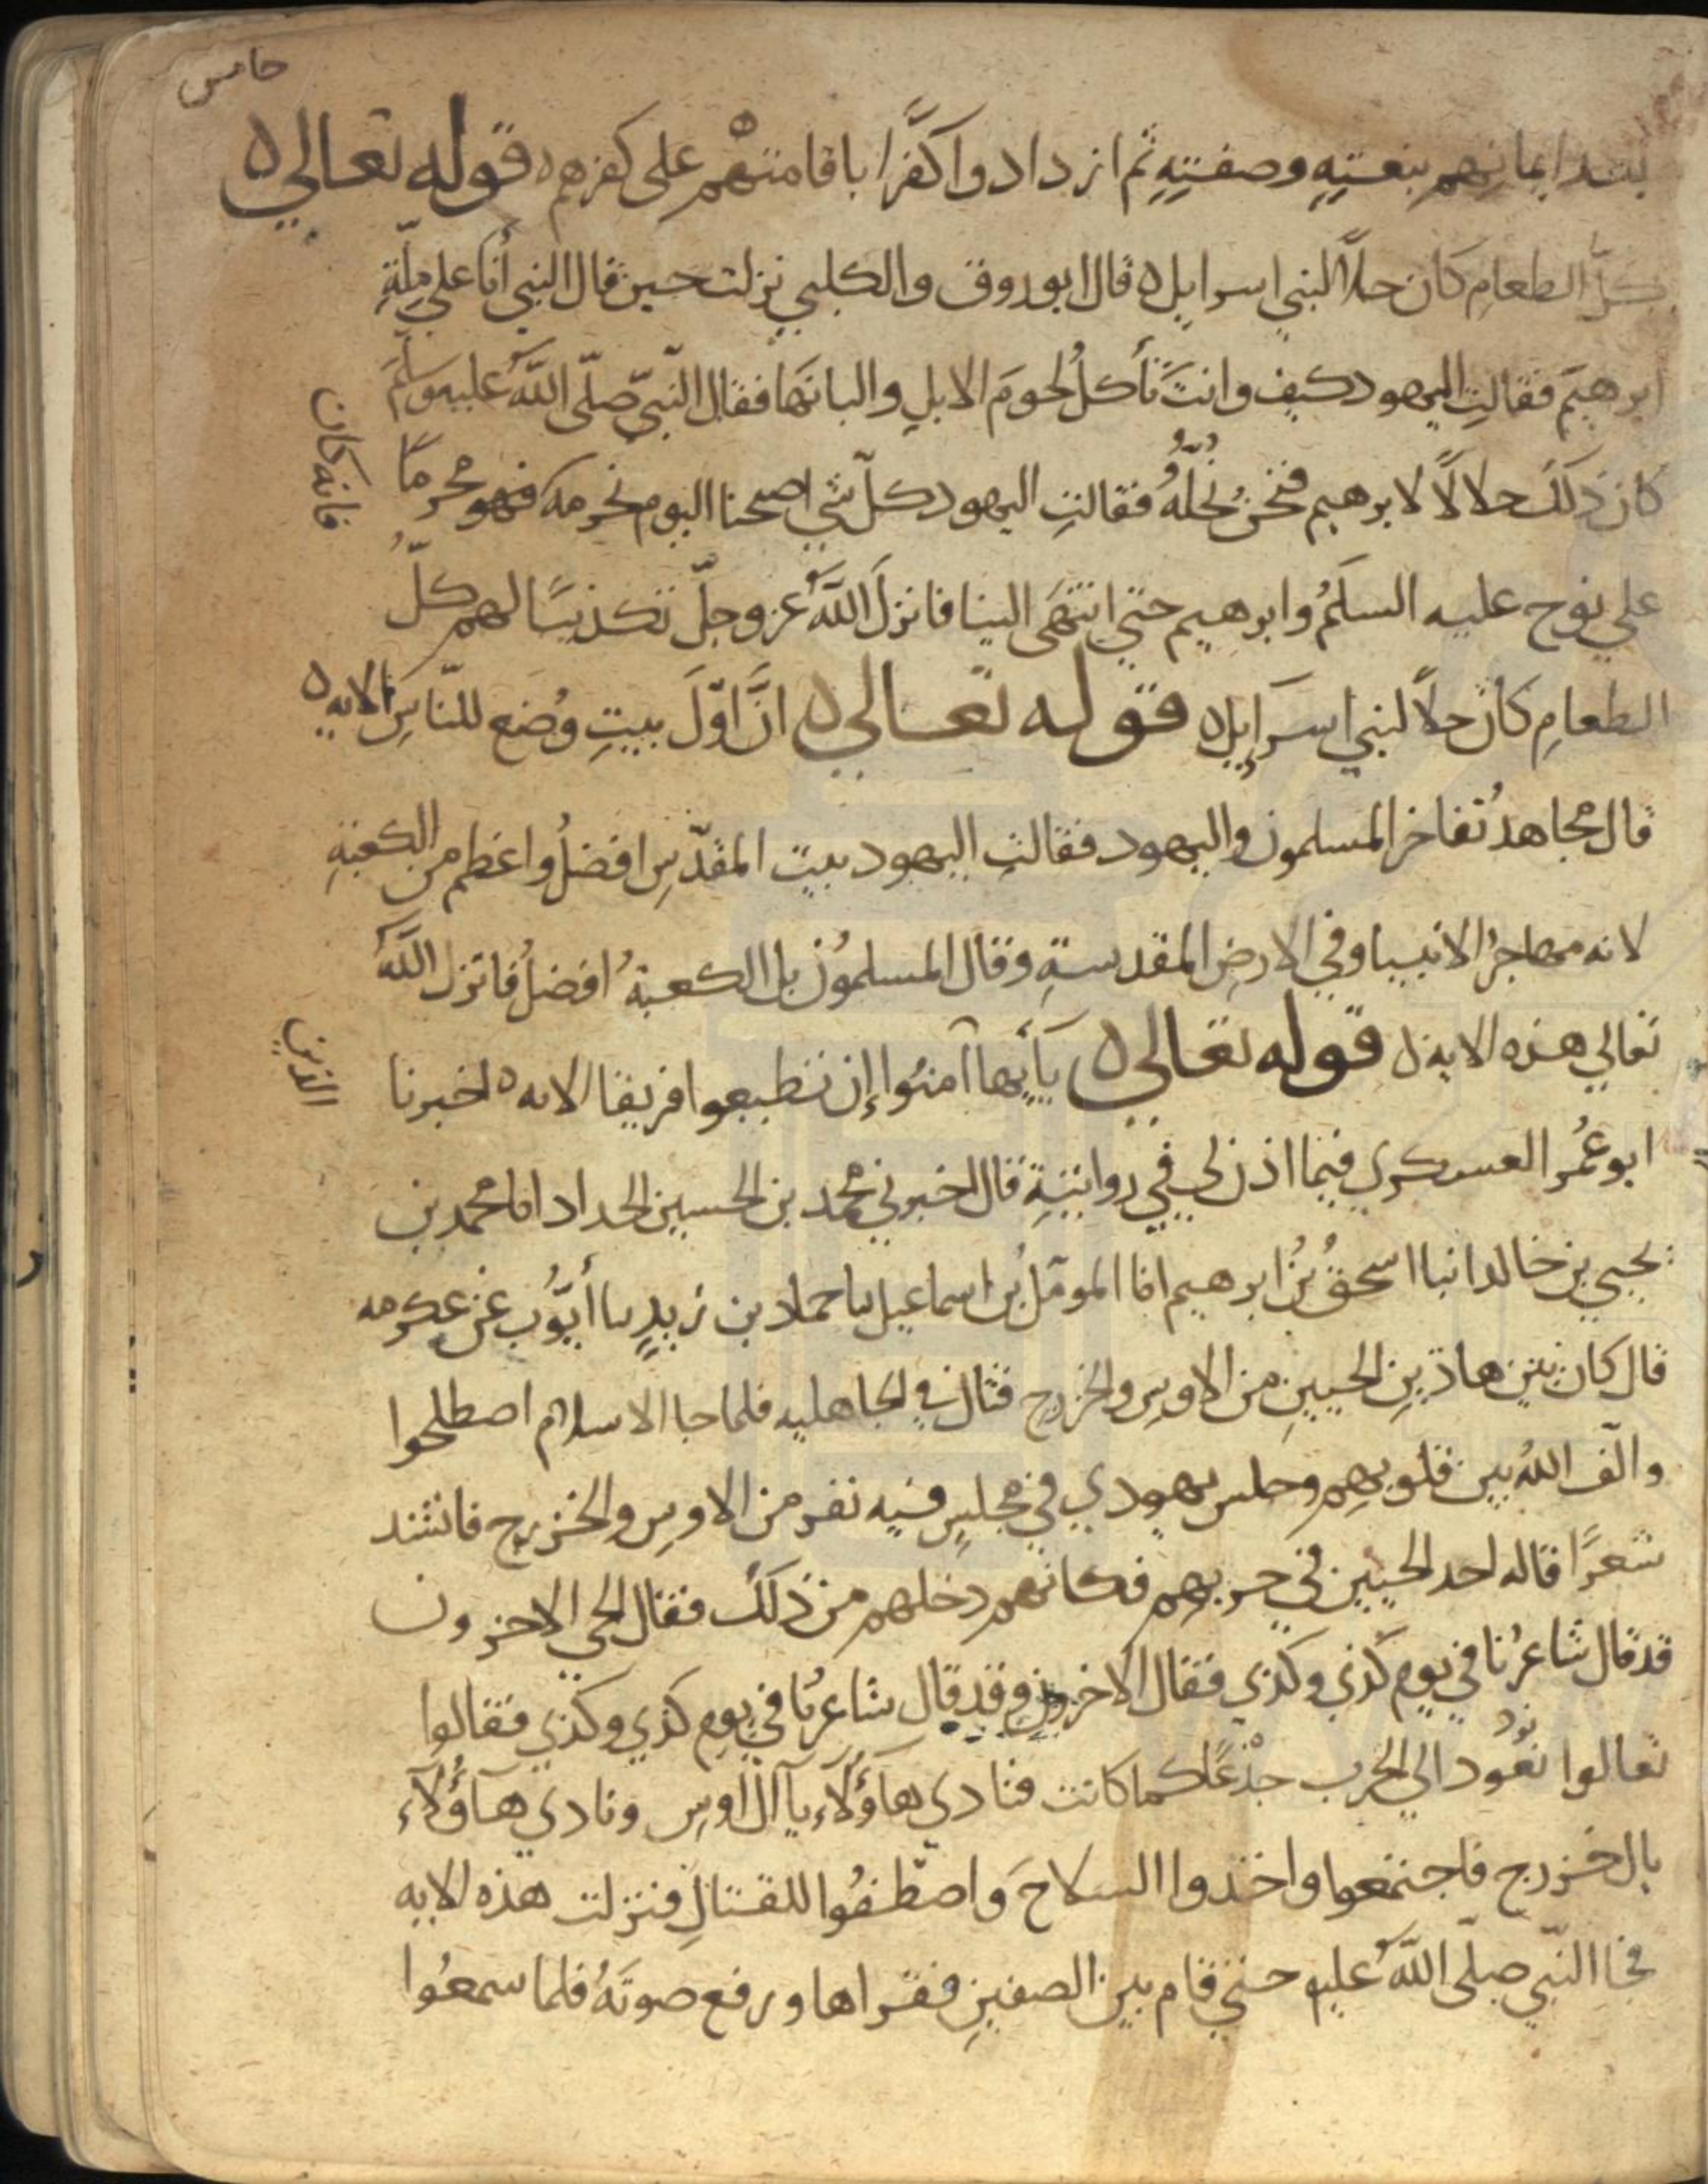 خامس
بعد ايمانِهم بنعتِهِ وصفتِهِ ثم ازدادوا كفرًا باقامتهم على كفرهم ه قوله تعالى ه
كلّ الطعامِ كان حلاًّ لبني اسرايل ه قال ابو روق والكلبي نزلت حين قال النبي أنا علي ملّةِ
ابرهيم فقالتِ اليهود كيف وانتَ تأكلُ لحومَ الابلِ والبانَها فقال النّبيّ صلّى اللهُ عليه وسلّمَ
كان ذلكَ حلالاً لابرهيم فنحنُ نُحِلُّهُ فقالتِ اليهود كلّ شي اصبحنا اليوم نحرمه فهو محرمًا
فانه كان
علي نوح عليه السلَمُ وابرهيم حتي انتهَى الينا فانزلَ اللهُ عز وجلّ تكذيبًا لهم كلّ
الطعامِ كانَ حلاًّ لبني اسرَايل ه قوله تعالى ه انَّ اوّلَ بيتٍ وُضع للنّاسِ الايه ه
قال مجاهدُ تفاخر المسلمون واليهود فقالتِ اليهود بيت المقدّسِ افضلُ واعظم من الكعبةِ
لانه مهاجرُ الانبيا وفي الارضِ المقدسةِ وقال المسلمُون بل الكعبةُ افضلُ فانزل اللهُ
تعالي هذه الايه ه قوله تعالى ه يَآ أيها آمنُوا إن تطيعوا فريقا الايه ه اخبرنا
الذين
ابو عُمر العسكري فيما اذن لي في روايتِهِ قال اخبرني محمد بن الحسين الحداد انا محمد بن
يحيي بن خالد انبا اسحقُ بنُ ابرهيم انا المومّل بن اسماعيل سا حماد بن زيدٍ سا أيّوُب عن عكرمه
قال كان بين هاذينِ الحيينِ من الاوسِ والخزرج قتال في الجاهليه فلما جا الاسلام اصطلحوا
والّف اللهُ بين قلوبِهِم وجلس يهودي في مجلسٍ فيه نفر من الاوسِ والخزرج فانشد
شعرًا قاله احد الحيين في حربهم فكانهم دخلهم من ذلكَ فقال الحي الاخرون
قد قال شاعرُنا في يومِ كذي وكذي فقال الاخرون وقد قال شاعرنا في يومِ كذي وكذي فقالوا
تعالوا نعُود الي الحرب جذْعًا كما كانت فنادي هآؤلآءِ يآ آل اوسِ ونادي هآؤلآءِ
يال خزرج فاجتمعوا واخذوا السلاحَ وَاصطّفُوا للقتالِ فنزلت هذه الايه
فجا النّبي صلّى اللهُ عليه حتي قام بين الصفينِ فقراها ورفع صوتَهُ فلما سمعُوا